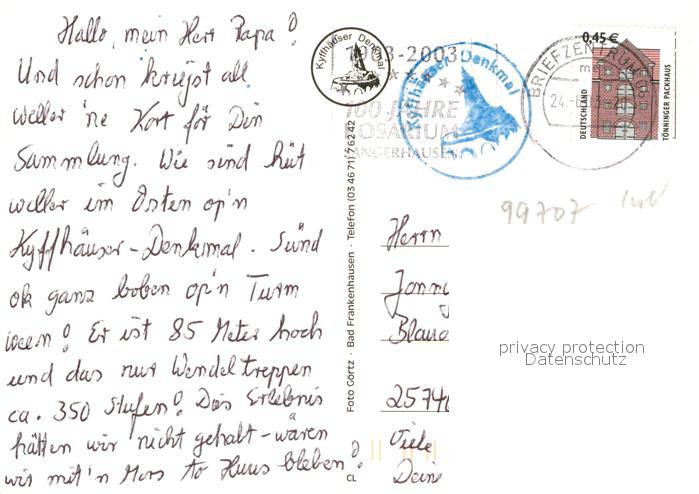 Hallo, mein Herr Papa!
Und schon kriejst all
weller 'ne Kort för Din
Sammlung. Wie sind hüt
weller im Osten op'n
Kyffhäuser-Denkmal. Sünd
ok ganz boben op'n Turm
ween! Er ist 85 Meter hoch
und das nur Wendeltreppen
ca. 350 Stufen! Das Erlebnis
hätten wir nicht gehalt - wären
wir mit'n Mors to Huus bleben!
Kyffhäuser Denkmal
-2003
100 JAHRE
ROSARIUM
SANGERHAUSEN
Kyffhäuser Denkmal
BRIEFZENTRUM
24.-6.03
0,45 €
DEUTSCHLAND
TÖNNINGER PACKHAUS
Foto Görtz · Bad Frankenhausen · Telefon (0 34 671) 7 62 42
CL
99707
Herrn
privacy protection
Datenschutz
2574
Viele